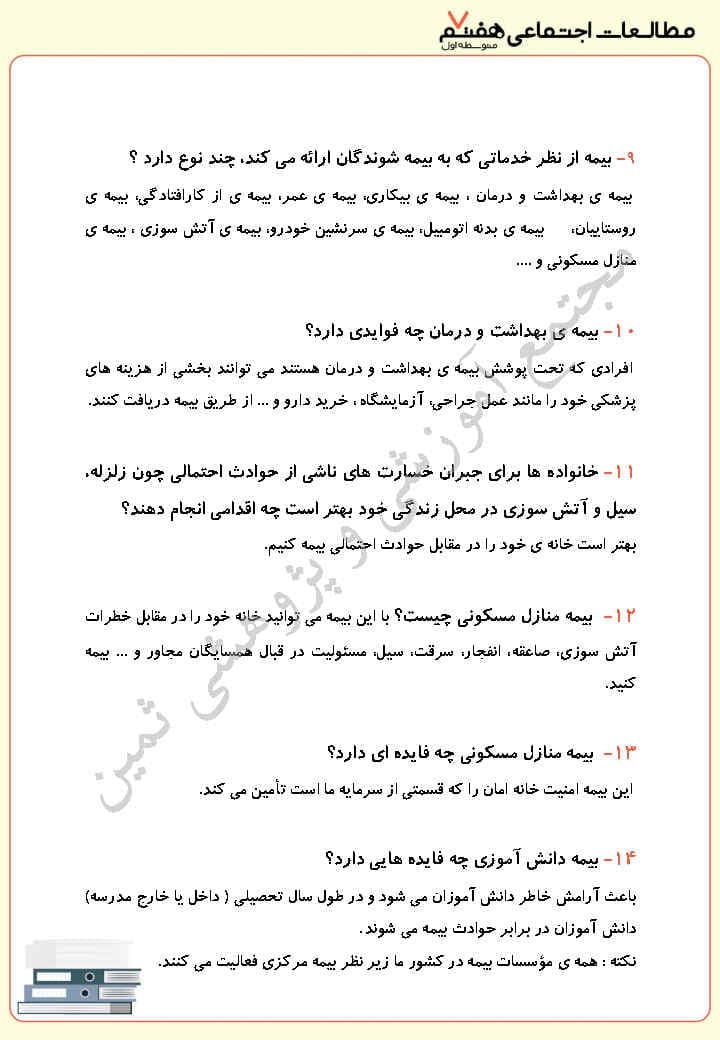 مطالعات اجتماعی هفتم ۷
متوسطه اول
۹- بیمه از نظر خدماتی که به بیمه شوندگان ارائه می کند، چند نوع دارد ؟
بیمه ی بهداشت و درمان ، بیمه ی بیکاری، بیمه ی عمر، بیمه ی از کارافتادگی، بیمه ی
روستاییان، بیمه ی بدنه اتومبیل، بیمه ی سرنشین خودرو، بیمه ی آتش سوزی ، بیمه ی
منازل مسکونی و ....
۱۰- بیمه ی بهداشت و درمان چه فوایدی دارد؟
افرادی که تحت پوشش بیمه ی بهداشت و درمان هستند می توانند بخشی از هزینه های
پزشکی خود را مانند عمل جراحی، آزمایشگاه ، خرید دارو و ... از طریق بیمه دریافت کنند.
۱۱- خانواده ها برای جبران خسارت های ناشی از حوادث احتمالی چون زلزله،
سیل و آتش سوزی در محل زندگی خود بهتر است چه اقدامی انجام دهند؟
بهتر است خانه ی خود را در مقابل حوادث احتمالی بیمه کنیم.
۱۲- بیمه منازل مسکونی چیست؟ با این بیمه می توانید خانه خود را در مقابل خطرات
آتش سوزی، صاعقه، انفجار، سرقت، سیل، مسئولیت در قبال همسایگان مجاور و ... بیمه
کنید.
۱۳- بیمه منازل مسکونی چه فایده ای دارد؟
این بیمه امنیت خانه امان را که قسمتی از سرمایه ما است تأمین می کند.
۱۴- بیمه دانش آموزی چه فایده هایی دارد؟
باعث آرامش خاطر دانش آموزان می شود و در طول سال تحصیلی ( داخل یا خارج مدرسه)
دانش آموزان در برابر حوادث بیمه می شوند.
نکته : همه ی مؤسسات بیمه در کشور ما زیر نظر بیمه مرکزی فعالیت می کنند.
مجتمع آموزشی و پژوهشی ثمین